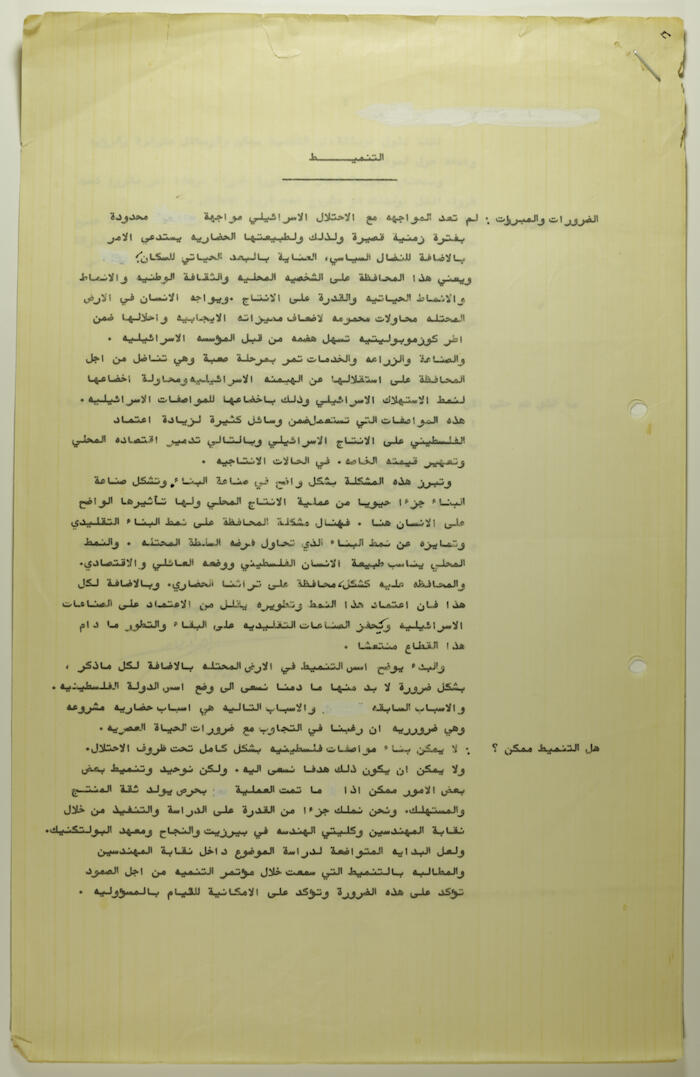 التنميـــــــط
الضرورات والمبررات : لم تعد المواجهه مع الاحتلال الاسرائيلي مواجهة محدودة
بفترة زمنية قصيرة ولذلك ولطبيعتها الحضاريه يستدعى الامر
بالاضافة للنضال السياسي، العناية بالبعد الحياتي للسكان.
ويعني هذا المحافظة على الشخصيه المحليه والثقافة الوطنيه والانماط
والانماط الحياتيه والقدرة على الانتاج .ويواجه الانسان في الارض
المحتله محاولات محمومه لاضعاف مميزاته الايجابيه واحلالها ضمن
اطر كوزموبوليتيه تسهل هضمه من قبل المؤسسه الاسرائيليه .
والصناعة والزراعه والخدمات تمر بمرحلة صعبة وهي تناضل من اجل
المحافظة على استقلالها عن الهيمنه الاسرائيليه ومحاولة اخضاعها
لنمط الاستهلاك الاسرائيلي وذلك باخضاعها للمواصفات الاسرائيليه .
هذه المواصفات التي تستعمل ضمن وسائل كثيرة لزيادة اعتماد
الفلسطيني على الانتاج الاسرائيلي وبالتالي تدمير اقتصاده المحلي
وتصهير قيمته الخاصه . في الحالات الانتاجيه .
وتبرز هذه المشكلة بشكل واضح في صناعة البناء . وتشكل صناعة
البناء جزءا حيويا من عملية الانتاج المحلي ولها تأثيرها الواضح
على الانسان هنا . فهنال مشكلة المحافظة على نمط البناء التقليدي
وتمايزه عن نمط البناء الذي تحاول فرضه السلطة المحتله . والنمط
المحلي يناسب طبيعة الانسان الفلسطيني ووضعه العائلي والاقتصادي.
والمحافظه عليه كشكل، محافظة على تراثنا الحضاري. وبالاضافة لكل
هذا فان اعتماد هذا النمط وتطويره يقلل من الاعتماد على الصناعات
الاسرائيليه ويحفز الصناعات التقليديه على البقاء والتطور ما دام
هذا القطاع منتعشا .
والبدء بوضع اسس التنميط في الارض المحتله بالاضافة لكل ماذكر ،
بشكل ضرورة لا بد منها ما دمنا نسعى الى وضع اسس الدولة الفلسطينيه .
والاسباب السابقه والاسباب التاليه هي اسباب حضاريه مشروعه
وهي ضروريه ان رغبنا في التجاوب مع ضرورات الحياة العصريه .
هل التنميط ممكن ؟ : لا يمكن بناء مواصفات فلسطينيه بشكل كامل تحت ظروف الاحتلال.
ولا يمكن ان يكون ذلك هدفا نسعى اليه . ولكن توحيد وتنميط بعض
بعض الامور ممكن اذا ما تمت العملية بحرص يولد ثقة المنتج
والمستهلك. ونحن نملك جزءا من القدرة على الدراسة والتنفيذ من خلال
نقابة المهندسين وكليتي الهندسه في بيرزيت والنجاح ومعهد البولتكنيك.
ولعل البدايه المتواضعة لدراسة الموضوع داخل نقابة المهندسين
والمطالبه بالتنميط التي سمعت خلال مؤتمر التنميه من اجل الصمود
تؤكد على هذه الضرورة وتؤكد على الامكانية للقيام بالمسؤوليه .